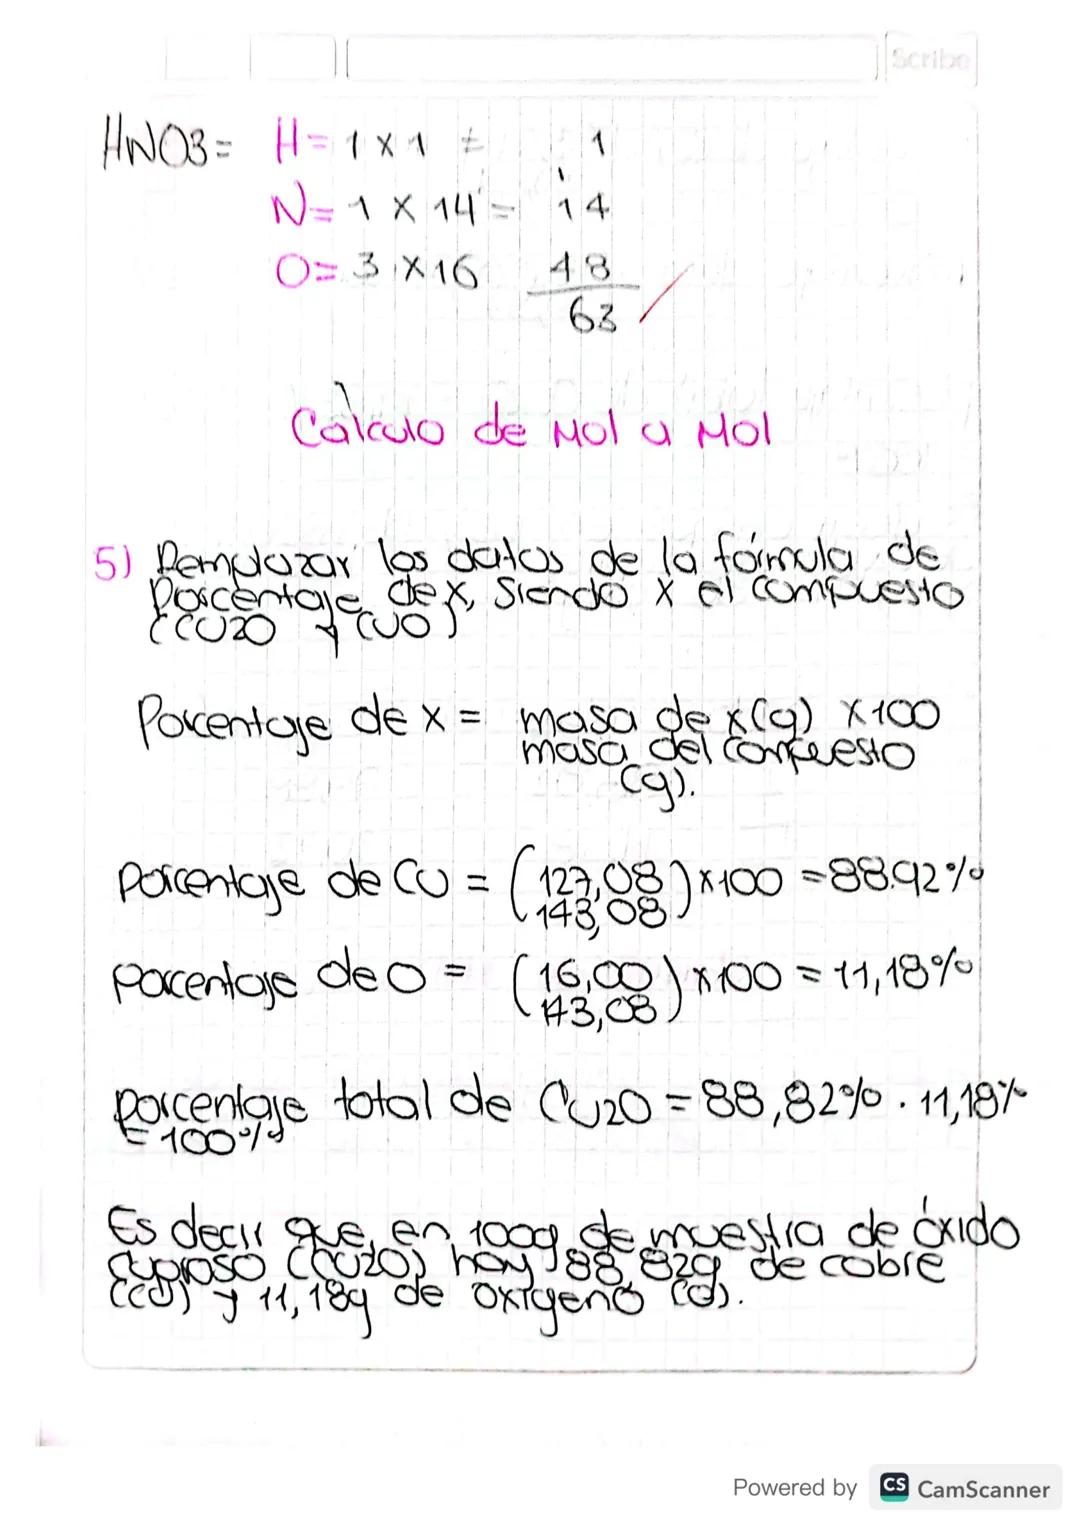 Scribe
HNO3= H= 1 x 1 = 1
N= 1 x 14 = 14
O= 3 x 16 48
63
Cálculo de Mol a Mol
5) Remplazar los datos de la fórmula de
Porcentaje de x, Siendo x el compuesto
(CU2O y CUO)
Porcentaje de x = masa de x(g) x100
masa del compuesto
(g).
Porcentaje de CU = (127,08) x100 = 88.92%
143,08
porcentaje de O = (16,00) x100 = 11,18%
143,08
porcentaje total de CU2O = 88,82% . 11,18%
= 100%
Es decir que, en 100g de muestra de óxido
cuproso (CU2O) hay 88,82g de cobre
(CU) y 11,18g de oxígeno (O).
Powered by CS CamScanner